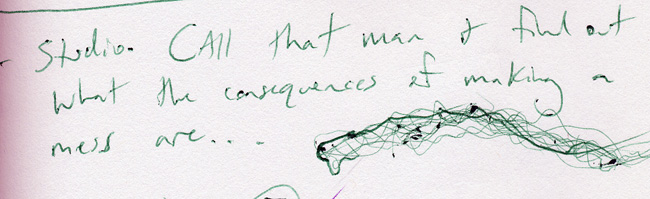 - Studio. CALL that man & find out
what the consequences of making a
mess are...